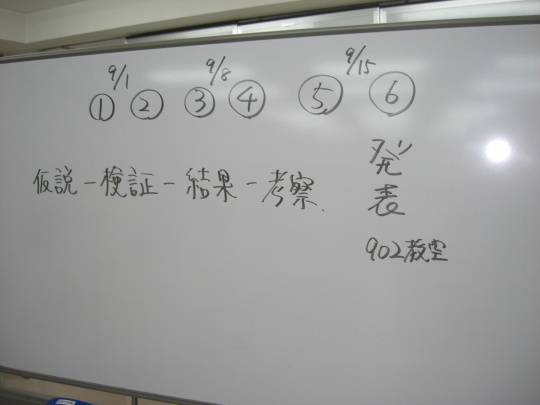 9/1 9/8 9/15
① ② ③ ④ ⑤ ⑥
仮説－検証－結果－考察.
発表
902教室